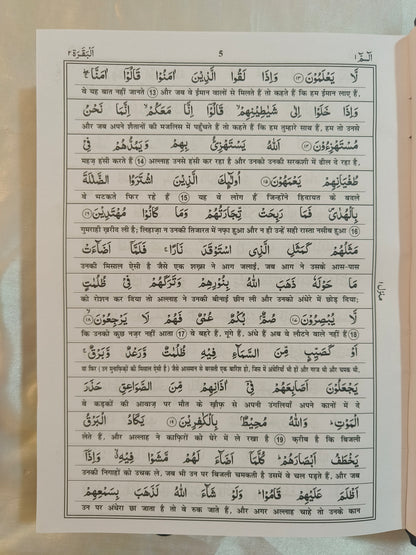 البقرة ٢ 5 الٓمّٓ ١
لَّا يَعْلَمُوْنَ ﴿۱۳﴾ وَاِذَا لَقُوا الَّذِيْنَ اٰمَنُوْا قَالُوْٓا اٰمَنَّا ۖۚ
वे यह बात नहीं जानते 13 और जब वे ईमान वालों से मिलते हैं तो कहते हैं कि हम ईमान लाए हैं,
وَاِذَا خَلَوْا اِلٰى شَيٰطِيْنِهِمْ ۙ قَالُوْٓا اِنَّا مَعَكُمْ ۙ اِنَّمَا نَحْنُ
और जब अपने शैतानों की मजालिस में पहुँचते हैं तो कहते हैं कि हम तुम्हारे साथ हैं, हम तो उनसे
مُسْتَهْزِءُوْنَ ﴿۱۴﴾ اَللّٰهُ يَسْتَهْزِئُ بِهِمْ وَيَمُدُّهُمْ فِيْ
महज़ हंसी करते हैं 14 अल्लाह उनसे हंसी कर रहा है और उनको उनकी सरकशी में ढील दे रहा है,
طُغْيَانِهِمْ يَعْمَهُوْنَ ﴿۱۵﴾ اُولٰٓئِكَ الَّذِيْنَ اشْتَرَوُا الضَّلٰلَةَ
वे भटकते फिर रहे हैं 15 यह वे लोग हैं जिन्होंने हिदायत के बदले
بِالْهُدٰى ۪ فَمَا رَبِحَتْ تِّجَارَتُهُمْ وَمَا كَانُوْا مُهْتَدِيْنَ ﴿۱۶﴾
गुमराही ख़रीद ली है; लिहाज़ा न उनकी तिजारत में नफ़ा हुआ और न ही उन्हें सही रास्ता नसीब हुआ 16
مَثَلُهُمْ كَمَثَلِ الَّذِى اسْتَوْقَدَ نَارًا ۚ فَلَمَّآ اَضَآءَتْ
उनकी मिसाल ऐसी है जैसे एक शख़्स ने आग जलाई, जब आग ने उसके आस-पास
مَا حَوْلَهٗ ذَهَبَ اللّٰهُ بِنُوْرِهِمْ وَتَرَكَهُمْ فِيْ ظُلُمٰتٍ
को रोशन कर दिया तो अल्लाह ने उनकी बीनाई छीन ली और उनको अंधेरे में छोड़ दिया;
لَّا يُبْصِرُوْنَ ﴿۱۷﴾ صُمٌّۢ بُكْمٌ عُمْيٌ فَهُمْ لَا يَرْجِعُوْنَ ﴿۱۸﴾ ۙ
कि उनको कुछ नज़र नहीं आता 17 वे बहरे हैं, गूंगे हैं, अंधे हैं अब वे लौटने वाले नहीं हैं 18
اَوْ كَصَيِّبٍ مِّنَ السَّمَآءِ فِيْهِ ظُلُمٰتٌ وَّرَعْدٌ وَّبَرْقٌ ۚ
या फिर (उन मुनाफ़िक़ों की मिसाल ऐसी है) जैसे आसमान से बरसती एक बारिश हो, जिस में अंधेरियाँ भी हों और गरज भी और चमक भी,
يَجْعَلُوْنَ اَصَابِعَهُمْ فِيْٓ اٰذَانِهِمْ مِّنَ الصَّوَاعِقِ حَذَرَ
वे कड़कों की आवाज़ पर मौत के ख़ौफ़ से अपनी उंगलियाँ अपने कानों में दे
الْمَوْتِ ؕ وَاللّٰهُ مُحِيْطٌۢ بِالْكٰفِرِيْنَ ﴿۱۹﴾ يَكَادُ الْبَرْقُ
लेते हैं, और अल्लाह ने काफ़िरों को घेरे में ले रखा है 19 क़रीब है कि बिजली
يَخْطَفُ اَبْصَارَهُمْ ؕ كُلَّمَآ اَضَآءَ لَهُمْ مَّشَوْا فِيْهِ ۙ وَاِذَآ
उनकी निगाहों को उचक ले, जब भी उन पर बिजली चमकती है उसमें वे चल पड़ते हैं, और जब
اَظْلَمَ عَلَيْهِمْ قَامُوْا ؕ وَلَوْ شَآءَ اللّٰهُ لَذَهَبَ بِسَمْعِهِمْ
उन पर अंधेरा छा जाता है तो वे रुक जाते हैं, और अगर अल्लाह चाहे तो उनके कान
منزل ١